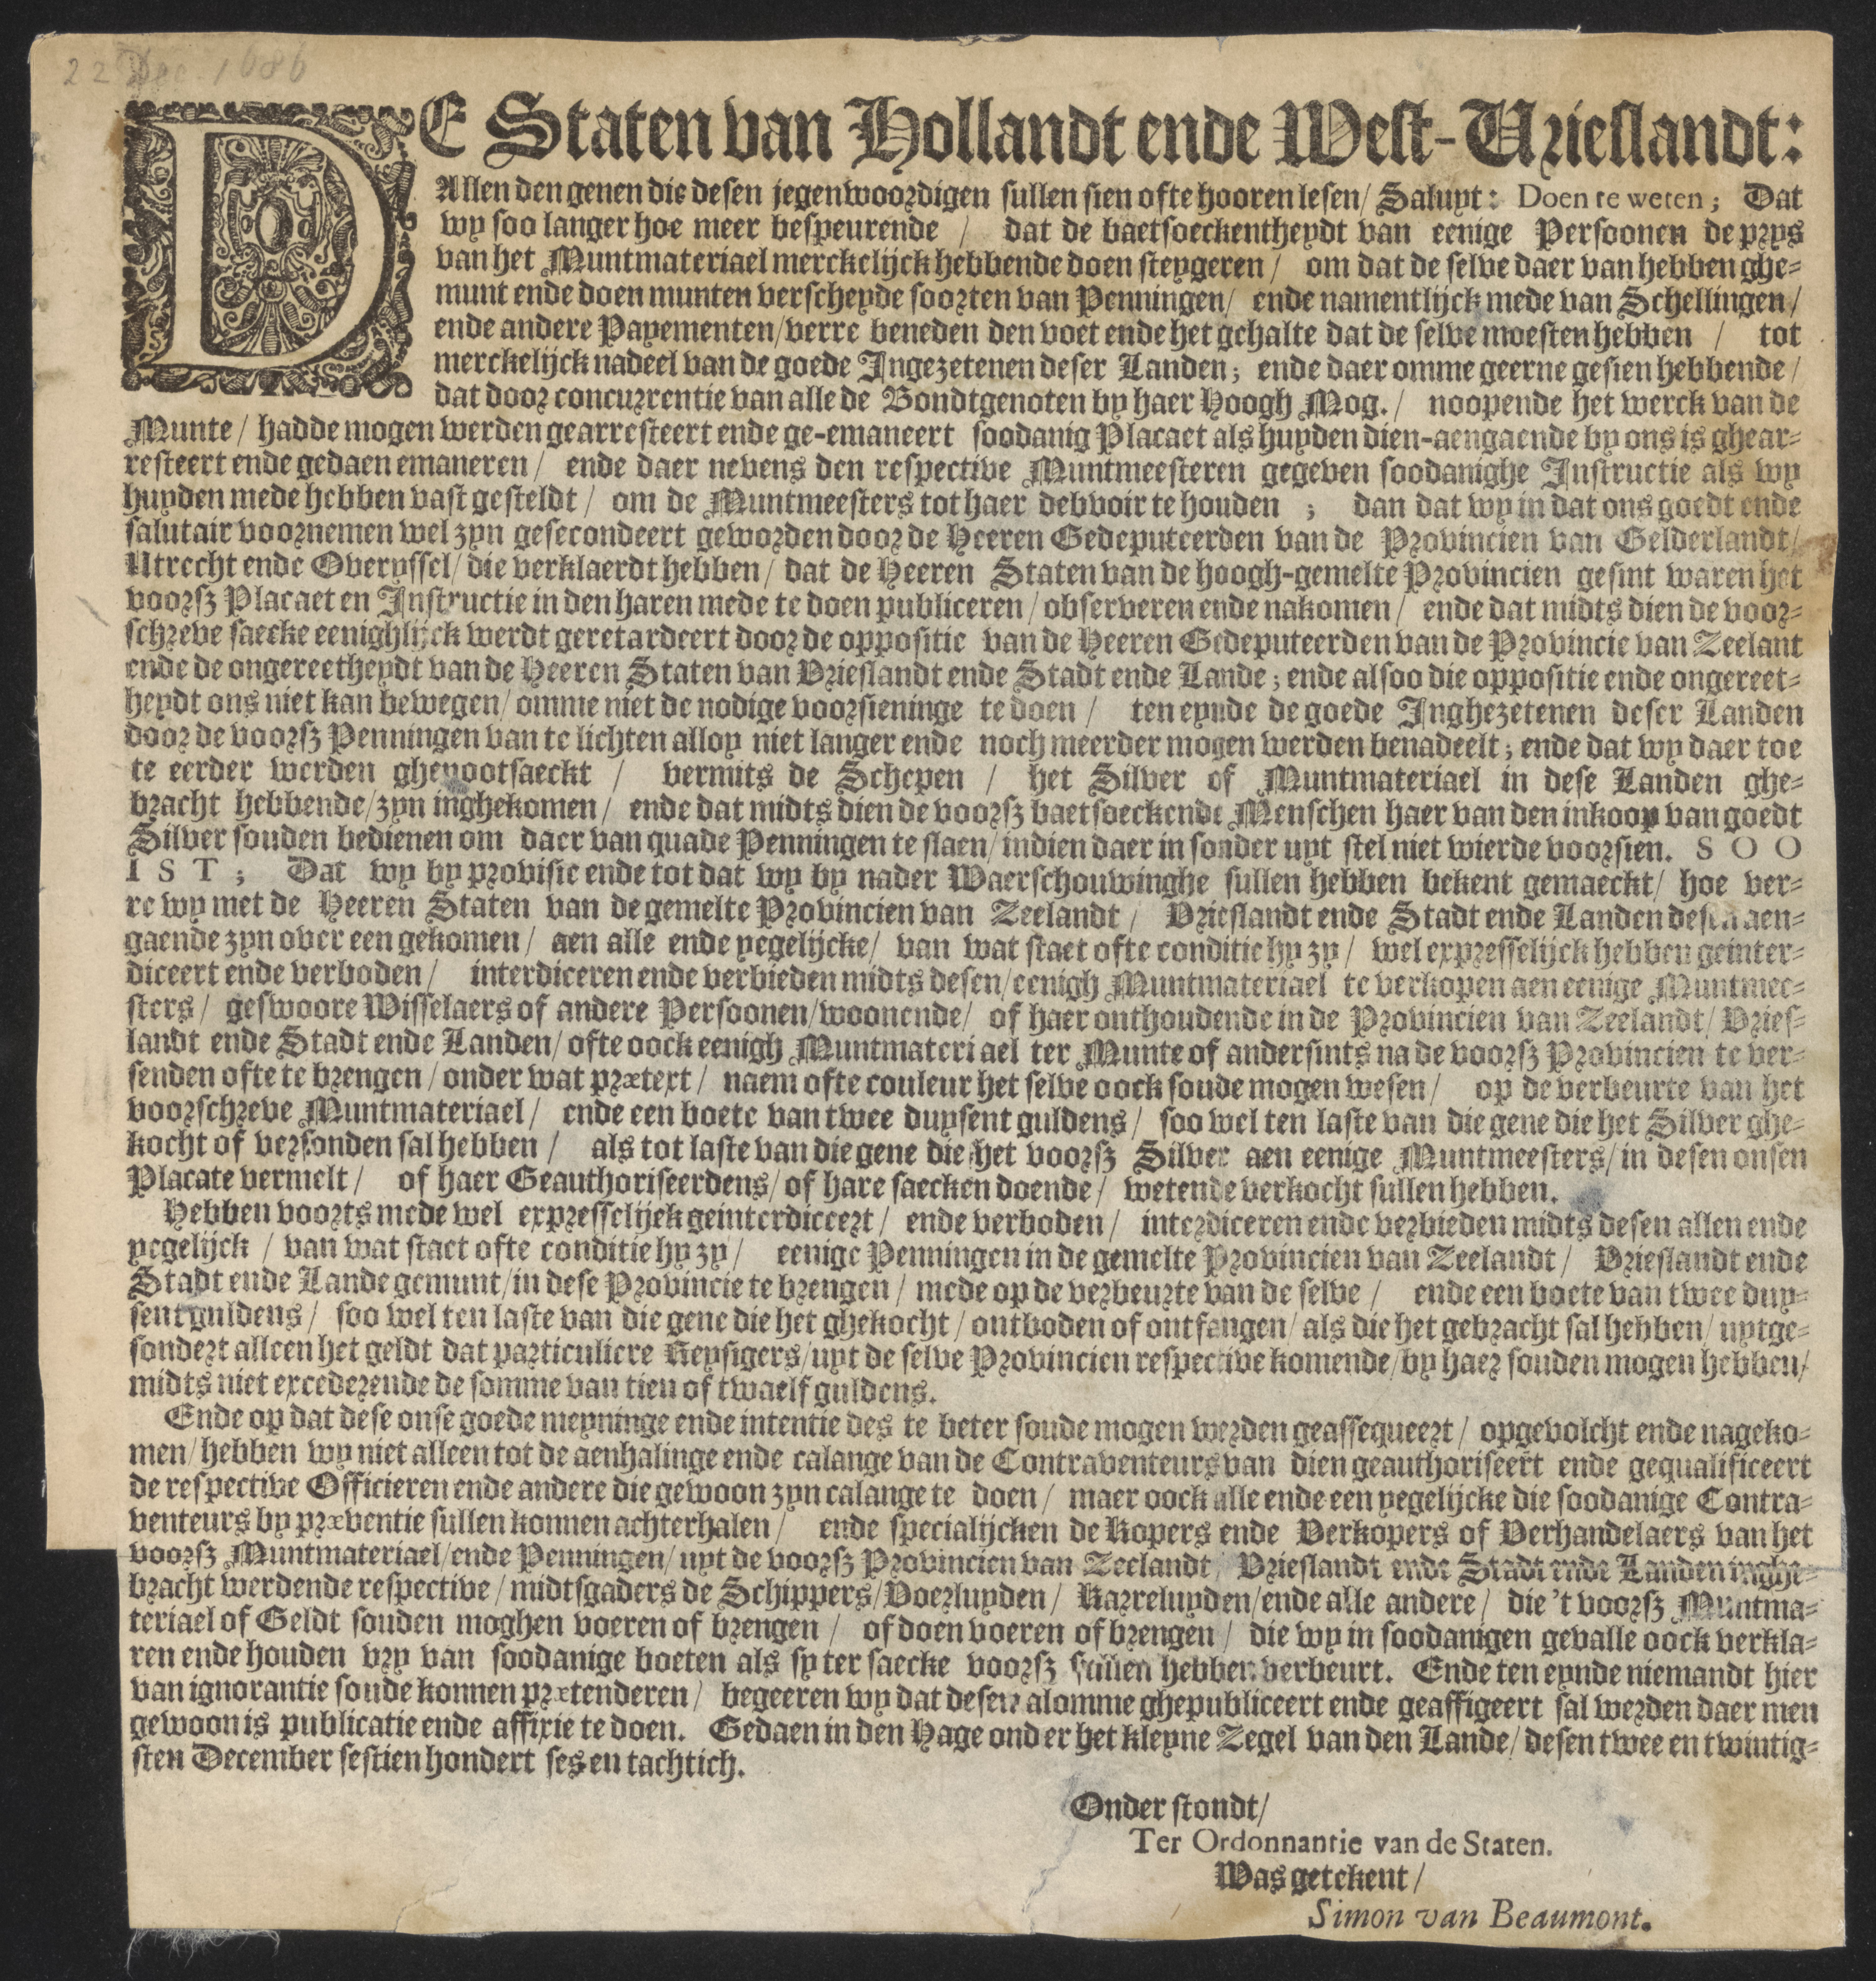 22 Dec. 1686
DE Staten van Hollandt ende West-Vrieslandt:
Allen den genen die desen jegenwoordigen sullen sien ofte hooren lesen/ Saluyt: Doen te weten; Dat
wy soo langer hoe meer bespeurende / dat de baetsoeckentheydt van eenige Persoonen de prys
van het Muntmateriael merckelijck hebbende doen steygeren / om dat de selve daer van hebben ghe-
munt ende doen munten verscheyde soorten van Penningen / ende namentlijck mede van Schellingen /
ende andere Payementen / verre beneden den voet ende het gehalte dat de selve moesten hebben / tot
merckelijck nadeel van de goede Ingezetenen deser Landen; ende daer omme geerne gesien hebbende /
dat door concurrentie van alle de Bondtgenoten by haer Hoogh Mog. / noopende het werck van de
Munte / hadde mogen werden gearresteert ende ge-emaneert soodanig Placaet als huyden dien-aengaende by ons is ghear-
resteert ende gedaen emaneren / ende daer nevens den respective Muntmeesteren gegeven soodanighe Instructie als wy
huyden mede hebben vast gesteldt / om de Muntmeesters tot haer debvoir te houden ; dan dat wy in dat ons goedt ende
salutair voornemen wel zyn gesecondeert geworden door de Heeren Gedeputeerden van de Provincien van Gelderlandt /
Utrecht ende Overyssel / die verklaerdt hebben / dat de Heeren Staten van de hoogh-gemelte Provincien gesint waren het
voorsz Placaet en Instructie in den haren mede te doen publiceren / observeren ende nakomen / ende dat midts dien de voor-
schreve saecke eenighlijck werdt geretardeert door de oppositie van de Heeren Gedeputeerden van de Provincie van Zeelant
ende de ongereetheydt van de Heeren Staten van Vrieslandt ende Stadt ende Lande; ende alsoo die oppositie ende ongereet-
heydt ons niet kan bewegen / omme niet de nodige voorsieninge te doen / ten eynde de goede Inghezetenen deser Landen
door de voorsz Penningen van te lichten alloy niet langer ende noch meerder mogen werden benadeelt; ende dat wy daer toe
te eerder werden ghenootsaeckt / vermits de Schepen / het Silver of Muntmateriael in dese Landen ghe-
bracht hebbende / zyn inghekomen / ende dat midts dien de voorsz baetsoeckende Menschen haer van den inkoop van goedt
Silver souden bedienen om daer van quade Penningen te slaen / indien daer in sonder uyt stel niet wierde voorsien. SOO
IST; Dat wy by provisie ende tot dat wy by nader Waerschouwinghe sullen hebben bekent gemaeckt / hoe ver-
re wy met de Heeren Staten van de gemelte Provincien van Zeelandt / Vrieslandt ende Stadt ende Landen desen aen-
gaende zyn over een gekomen / aen alle ende yegelijcke / van wat staet ofte conditie hy zy / wel expresselijck hebben geinter-
diceert ende verboden / interdiceren ende verbieden midts desen / eenigh Muntmateriael te verkopen aen eenige Muntmee-
sters / geswoore Wisselaers of andere Persoonen / woonende / of haer onthoudende in de Provincien van Zeelandt / Vries-
landt ende Stadt ende Landen / ofte oock eenigh Muntmateriael ter Munte of andersints na de voorsz Provincien te ver-
senden ofte te brengen / onder wat prætext / naem ofte couleur het selve oock soude mogen wesen / op de verbeurte van het
voorschreve Muntmateriael / ende een boete van twee duysent guldens / soo wel ten laste van die gene die het Silver ghe-
kocht of versonden sal hebben / als tot laste van die gene die het voorsz Silver aen eenige Muntmeesters / in desen onsen
Placate vermelt / of haer Geauthoriseerdens / of hare saecken doende / wetende verkocht sullen hebben.
Hebben voorts mede wel expresselijck geinterdiceert / ende verboden / interdiceren ende verbieden midts desen allen ende
yegelijck / van wat staet ofte conditie hy zy / eenige Penningen in de gemelte Provincien van Zeelandt / Vrieslandt ende
Stadt ende Lande gemunt / in dese Provincie te brengen / mede op de verbeurte van de selve / ende een boete van twee duy-
sent guldens / soo wel ten laste van die gene die het ghekocht / ontboden of ontfangen / als die het gebracht sal hebben / uytge-
sondert alleen het geldt dat particuliere Reysigers / uyt de selve Provincien respective komende / by haer souden mogen hebben /
midts niet excederende de somme van tien of twaelf guldens.
Ende op dat dese onse goede meyninge ende intentie des te beter soude mogen werden geassequeert / opgevolcht ende nageko-
men / hebben wy niet alleen tot de aenhalinge ende calange van de Contraventeurs van dien geauthoriseert ende gequalificeert
de respective Officieren ende andere die gewoon zyn calange te doen / maer oock alle ende een yegelijcke die soodanige Contra-
venteurs by præventie sullen konnen achterhalen / ende specialijcken de Kopers ende Verkopers of Verhandelaers van het
voorsz Muntmateriael / ende Penningen / uyt de voorsz Provincien van Zeelandt / Vrieslandt ende Stadt ende Landen inghe-
bracht werdende respective / midtsgaders de Schippers / Voerluyden / Karreluyden / ende alle andere / die 't voorsz Muntma-
teriael of Geldt souden moghen voeren of brengen / of doen voeren of brengen / die wy in soodanigen gevalle oock verkla-
ren ende houden vry van soodanige boeten als sy ter saecke voorsz sullen hebben verbeurt. Ende ten eynde niemandt hier
van ignorantie soude konnen prætenderen / begeeren wy dat desen alomme ghepubliceert ende geaffigeert sal werden daer men
gewoon is publicatie ende affixie te doen. Gedaen in den Hage onder het kleyne Zegel van den Lande / desen twee en twintig-
sten December sestien hondert ses en tachtich.
Onder stondt /
Ter Ordonnantie van de Staten.
Was getekent /
Simon van Beaumont.